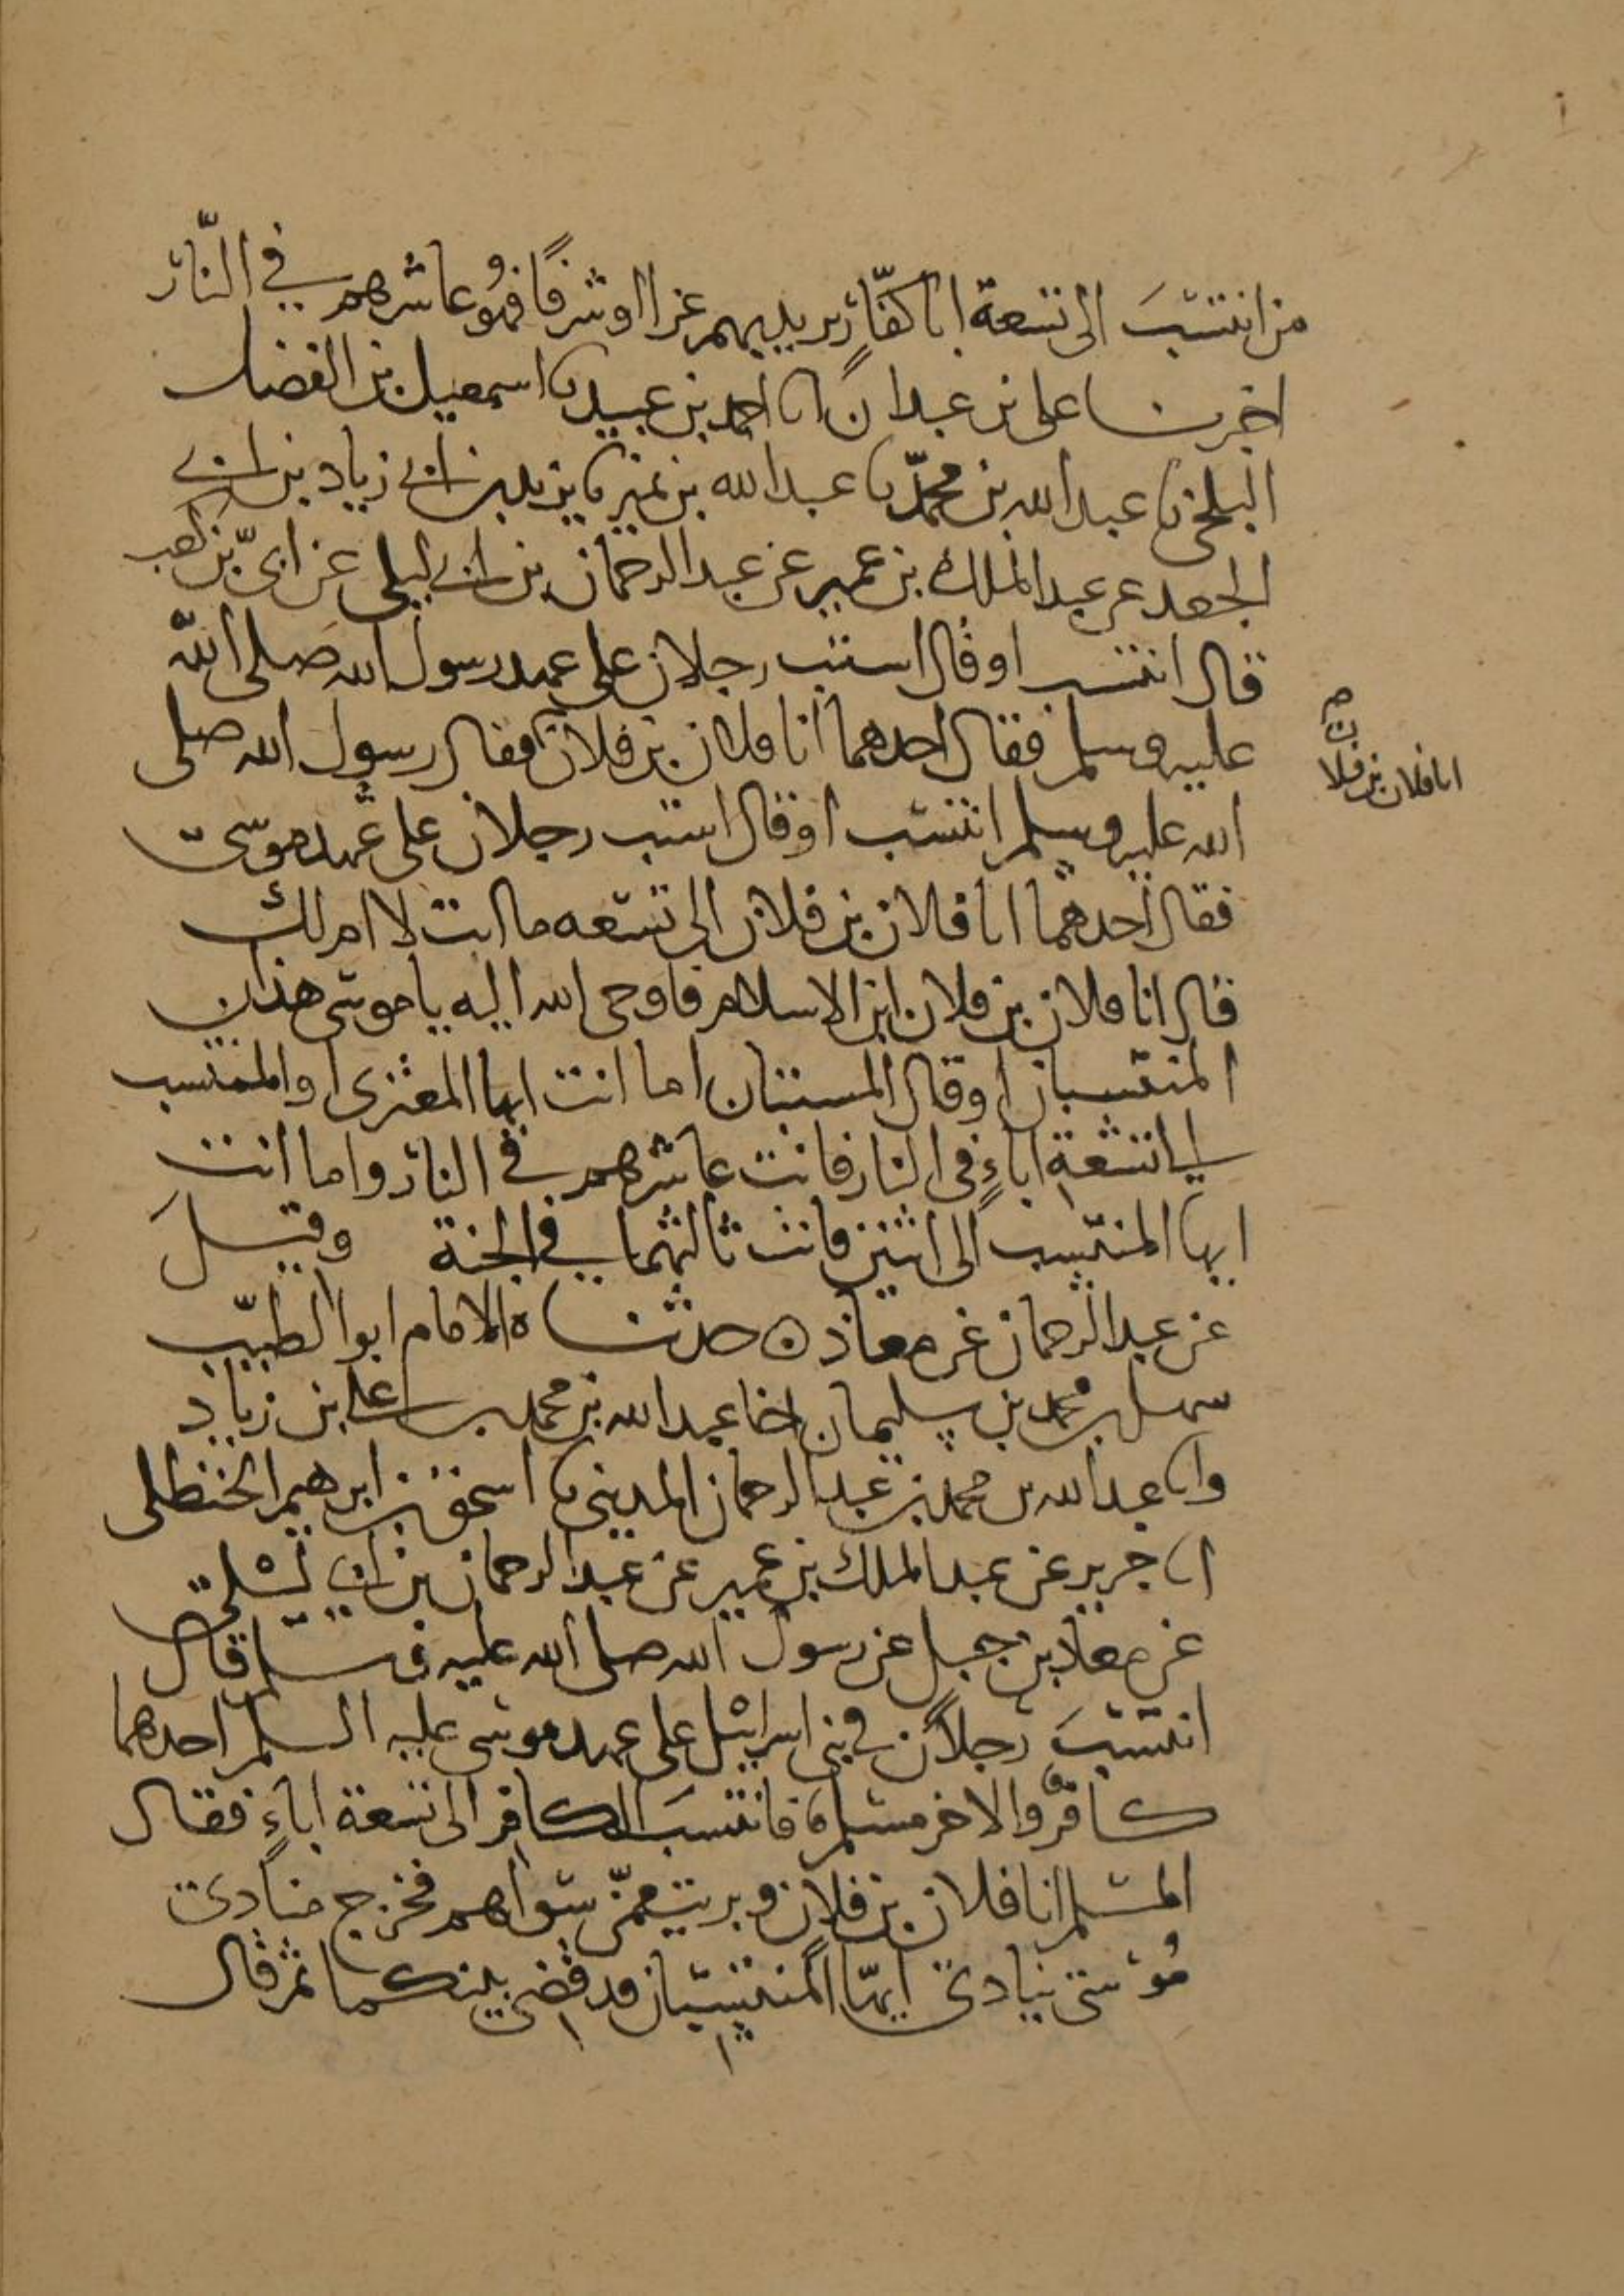 من انتسَبَ الى تسعة ابا كفّار يريد بهم عزا او شرفًا فهُو عاشرهم في النّار
اخبرنا على بن عبدان انا احمد بن عبيد نا اسمعيل بن الفضل
البلخى نا عبد الله بن محمّد نا عبد الله بن نمير نا يزيد بن ابي زياد بن ابي
الجعد عن عبد الملك بن عمير عن عبد الرحمان بن ابي ليلى عن ابىّ بن كعب
قال انتسب او قال استب رجلان على عهد رسول الله صلى الله
عليه وسلم فقال احدهما انا فلان بن فلان فقال رسول الله صلى
انا فلان بن فلا
ن
الله عليه وسلم انتسب او قال استب رجلان على عهد موسى
فقال احدهما انا فلان بن فلان الى تسعه ما انت لا ام لك
قال انا فلان بن فلان ابن الاسلام فاوحى الله اليه يا موسى هذان
المنتسبان او قال المستبان اما انت ايها المعتزى او المنتسب
الى تسعة اباءٍ فى النار فانت عاشرهم في النار واما انت
ايها المنتسب الى اثنين فانت ثالثهما في الجنة وقيل
عن عبد الرحمان عن معاذ ه حدثناه الامام ابو الطيّب
سهل بن محمد بن سليمان انا عبد الله بن محمد بن على بن زياد
وانا عبد الله بن محمد بن عبد الرحمان المدينى نا اسحق بن ابرهيم الحنظلى
انا جرير عن عبد الملك بن عمير عن عبد الرحمان بن ابي ليلى
عن معاذ بن جبل عن رسول الله صلى الله عليه وسلم قال
انتسَبَ رجلان في بنى اسرائيل على عهد موسى عليه السلم احدهما
كافرٌ والاخر مسلم فانتسبَ الكافر الى تسعة اباءٍ فقال
المسلم انا فلان بن فلان وبريت ممّن سواهم فخرج منادى
مُوسى ينادى ايّها المنتسبان قد قضى بينكما ثم قال